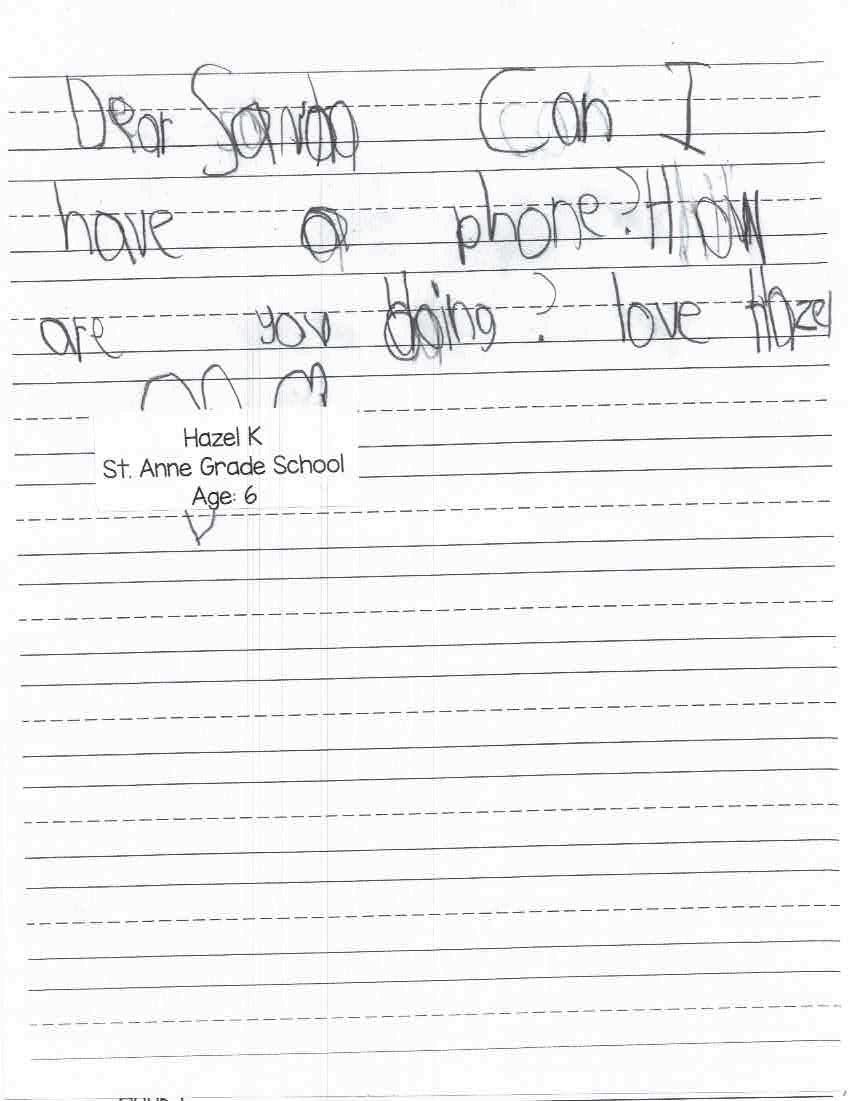 Dear Santa Can I
have a phone? How
are you doing? love Hazel
Hazel K
St. Anne Grade School
Age: 6